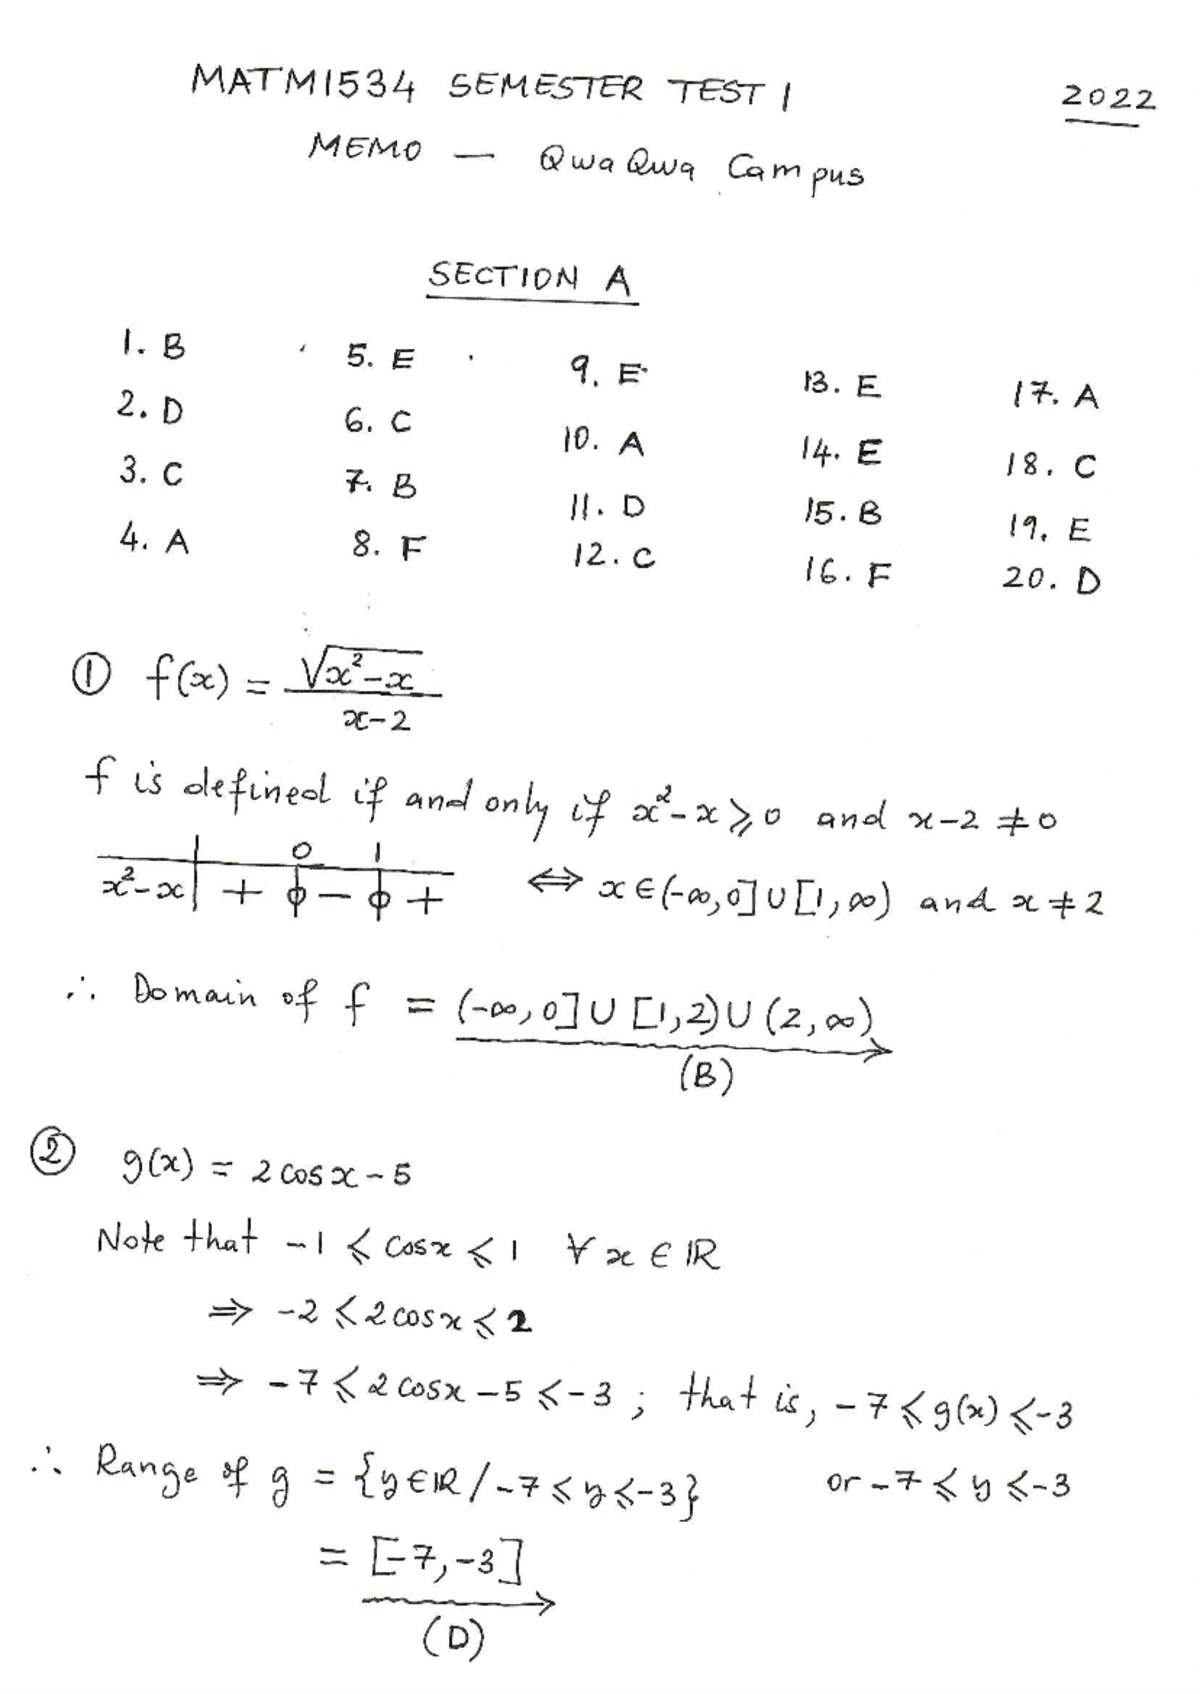 MATM1534 SEMESTER TEST 1 2022
MEMO — QwaQwa Campus
SECTION A
1. B 5. E 9. E 13. E 17. A
2. D 6. C 10. A 14. E 18. C
3. C 7. B 11. D 15. B 19. E
4. A 8. F 12. C 16. F 20. D
① f(x) = √(x²-x) / (x-2)
f is defined if and only if x²-x ⩾ 0 and x-2 ≠ 0
0 1
x²-x | + ϕ - ϕ + ⇔ x ∈ (-∞, 0] ∪ [1, ∞) and x ≠ 2
∴ Domain of f = (-∞, 0] ∪ [1, 2) ∪ (2, ∞)
(B)
② g(x) = 2 cos x - 5
Note that -1 ⩽ cos x ⩽ 1 ∀ x ∈ ℝ
⇒ -2 ⩽ 2 cos x ⩽ 2
⇒ -7 ⩽ 2 cos x - 5 ⩽ -3 ; that is, -7 ⩽ g(x) ⩽ -3
∴ Range of g = {y ∈ ℝ / -7 ⩽ y ⩽ -3} or -7 ⩽ y ⩽ -3
= [-7, -3]
(D)